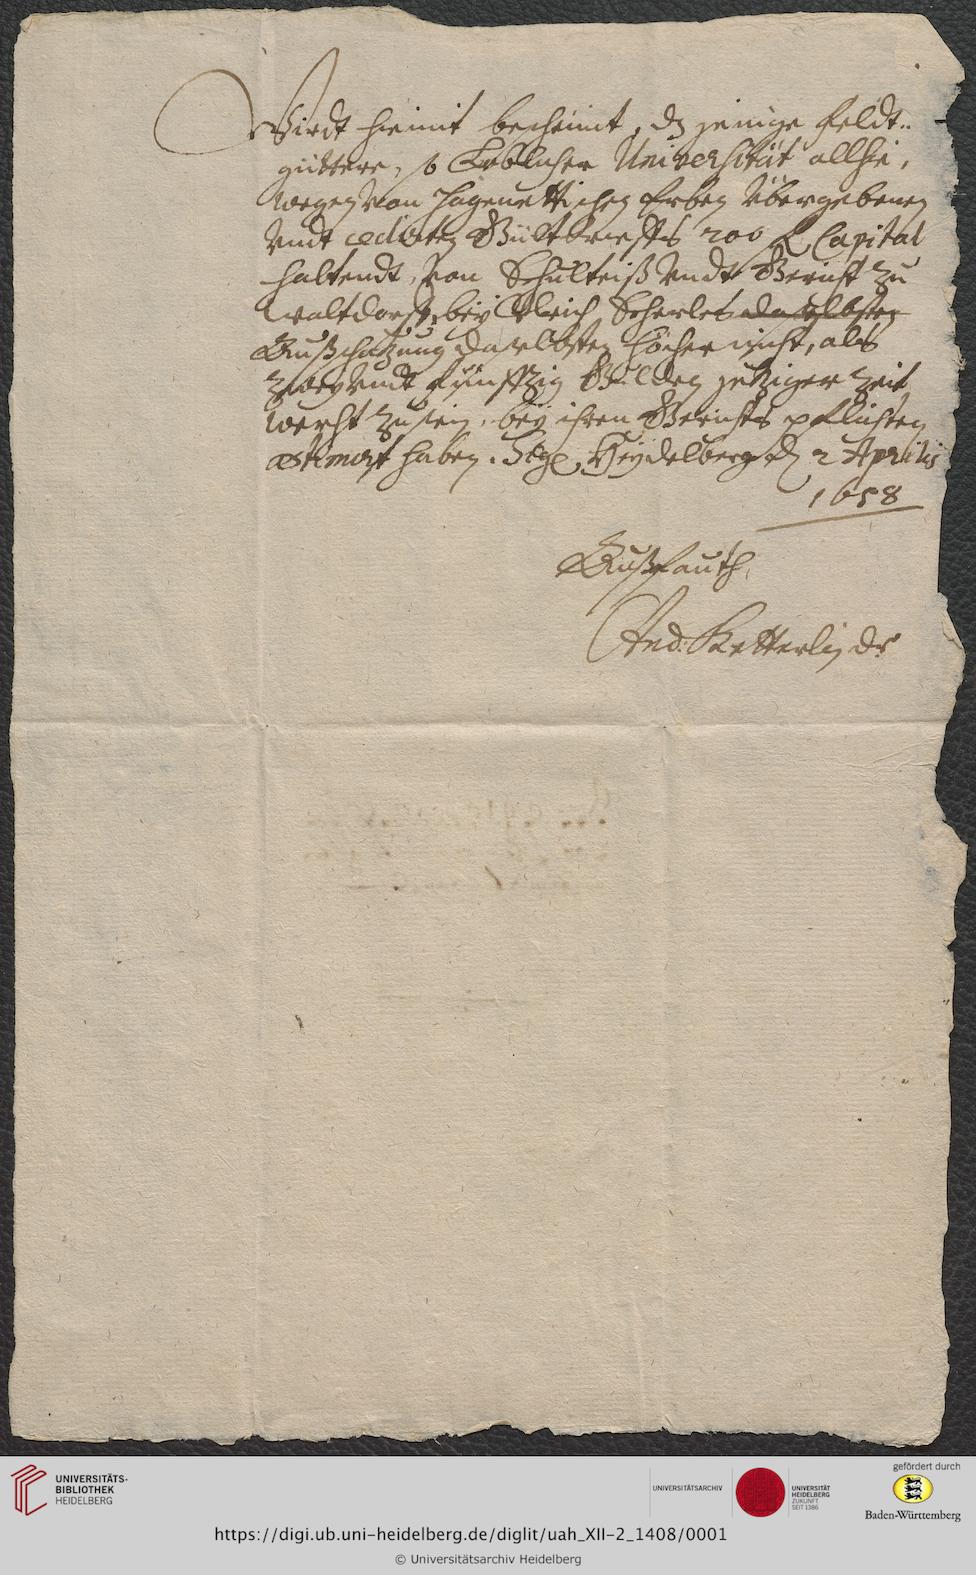 Wirdt hiemit bescheint, dz jenige Feldt-
güttere, so Loblicher Universität allhie,
wegen von Hagenettischen Erben übergebenen
undt cedirten Gültbrieffs 200 fl Capital
haltendt, von Schulteiß undt Gericht zu
Waltdorff, bey Ulrich Scherles daselbsten
Außschatzung daselbsten höcher nicht, als
zwey undt fünffzig Gulden jetziger Zeit
werht zu sein, bey ihren Gerichts pflichten
æstimirt haben. Sign. Heydelberg den 2 Aprilis
1658
Außfauth,
And: Ketterlin
UNIVERSITÄTS-
BIBLIOTHEK
HEIDELBERG
UNIVERSITÄTSARCHIV
UNIVERSITÄT
HEIDELBERG
ZUKUNFT
SEIT 1386
gefördert durch
Baden-Württemberg
https://digi.ub.uni-heidelberg.de/diglit/uah_XII-2_1408/0001
© Universitätsarchiv Heidelberg